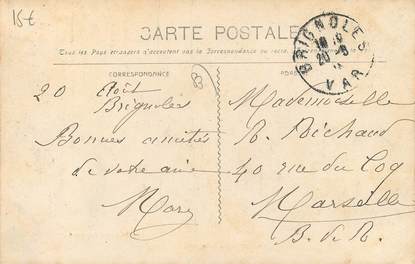 15€
CARTE POSTALE
Tous les Pays étrangers n'acceptent pas la Correspondance au recto.
CORRESPONDANCE
BRIGNOLES
20 -8
VAR
8
20 Août
Brignoles
Bonnes amitiés
de votre amie
Mary
Mademoiselle
R. Richaud
40 rue du Coq
Marseille
B. d. R.